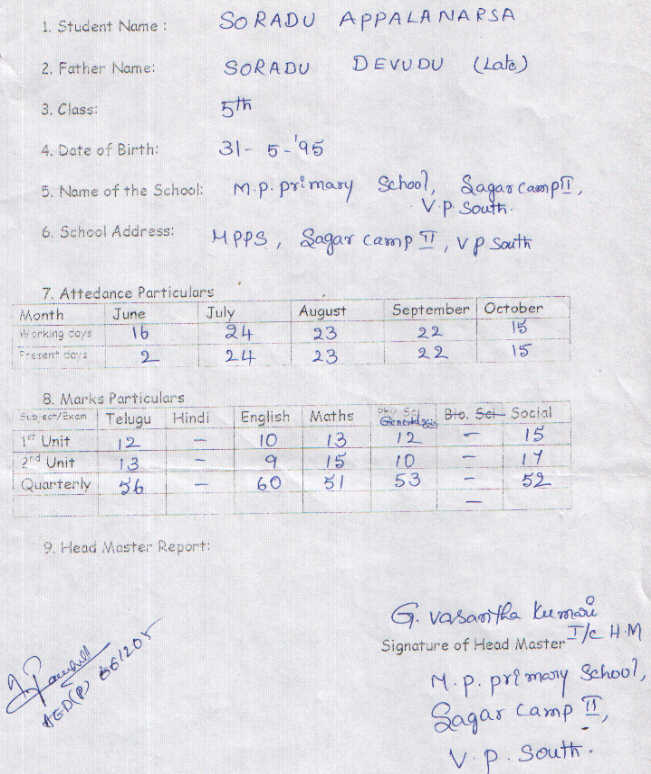 1. Student Name : SORADU APPALANARSA
2. Father Name: SORADU DEVUDU (Late)
3. Class: 5th
4. Date of Birth: 31- 5-'95
5. Name of the School: M.P. primary School, Sagar camp II,
V.P. South.
6. School Address: MPPS, Sagar camp II, V P South
7. Attedance Particulars
Month June July August September October
Working days 16 24 23 22 15
Present days 2 24 23 22 15
8. Marks Particulars
Subject/Exam Telugu Hindi English Maths Phy. Sci Bio. Sci Social
1st Unit 12 – 10 13 12 – 15
2nd Unit 13 – 9 15 10 – 17
Quarterly 56 – 60 51 53 – 52
–
9. Head Master Report:
G. Vasantha Kumari
Signature of Head Master I/c H.M
M.P. primary School,
Sagar Camp II,
V.P. South.
AGD(P)